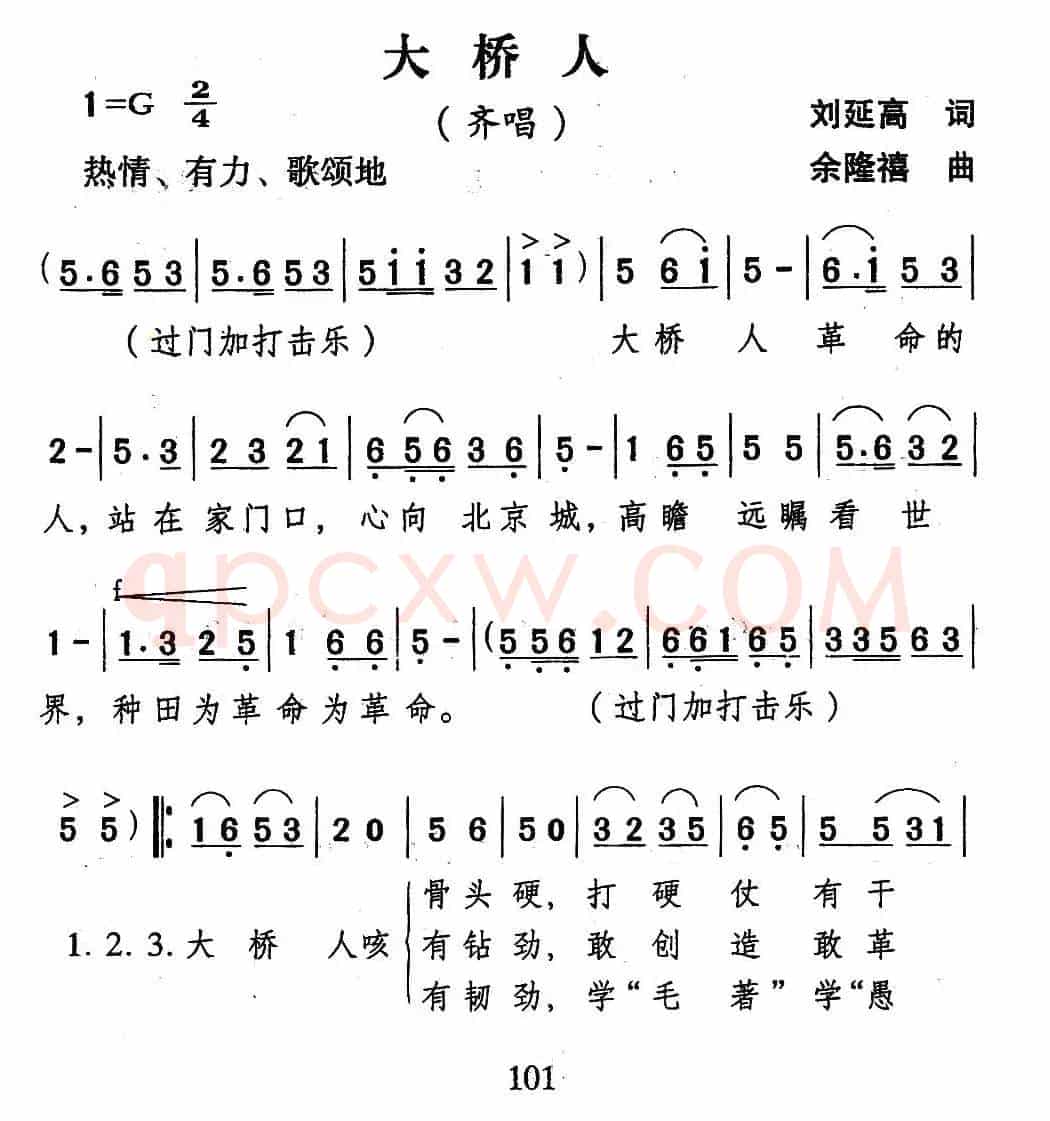 大桥人
1=G 2/4
（齐唱）
刘延高 词
热情、有力、歌颂地
余隆禧 曲
(5.6 5 3 | 5.6 5 3 | 5 i i 3 2 | 1 1) | 5 6 i | 5 - | 6.i 5 3 |
（过门加打击乐） 大桥 人 革 命的
2 - | 5. 3 | 2 3 2 1 | 6 5 6 3 6 | 5 - | 1 6 5 | 5 5 | 5.6 3 2 |
人，站在 家门口，心向 北京城，高瞻 远瞩看 世
f
1 - | 1.3 2 5 | 1 6 6 | 5 - | (5 5 6 1 2 | 6 6 1 6 5 | 3 3 5 6 3 |
界，种田为革命为革命。 （过门加打击乐）
5 5) ‖: 1 6 5 3 | 2 0 | 5 6 | 5 0 | 3 2 3 5 | 6 5 | 5 5 3 1 |
骨头硬，打硬仗有干
1. 2. 3. 大桥 人咳 有钻劲，敢创造敢革
有韧劲，学“毛著”学“愚
101
qpcxw.COM